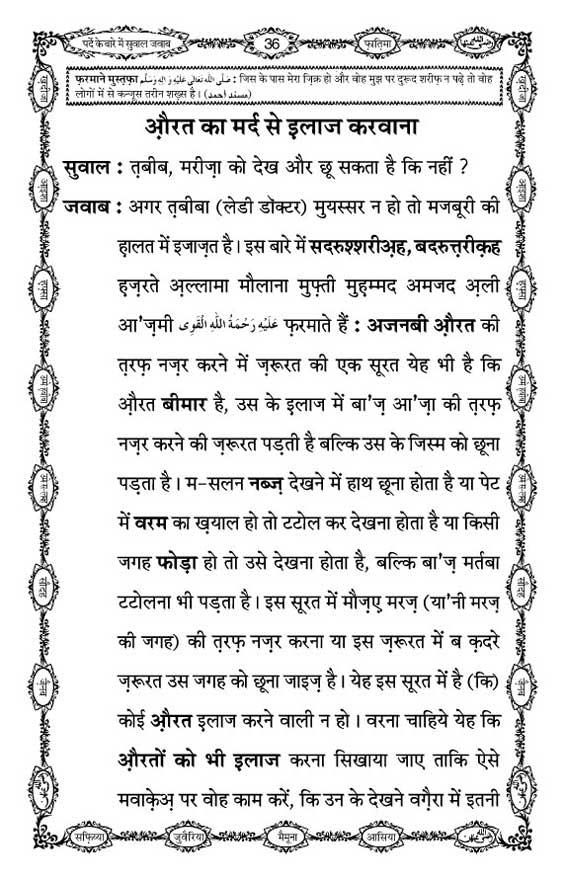 पर्दे के बारे में सुवाल जवाब
36
फ़ातिमा
फ़रमाने मुस्तफ़ा صَلَّى اللهُ تَعَالٰى عَلَيْهِ وَاٰلِهٖ وَسَلَّم : जिस के पास मेरा ज़िक्र हो और वोह मुझ पर दुरूद शरीफ़ न पढ़े तो वोह
लोगों में से कन्जूस तरीन शख़्स है । (مسند احمد)
औ़रत का मर्द से इलाज करवाना
सुवाल : त़बीब, मरीज़ा को देख और छू सकता है कि नहीं ?
जवाब : अगर त़बीबा (लेडी डॉक्टर) मुयस्सर न हो तो मजबूरी की
ह़ालत में इजाज़त है । इस बारे में सदरुश्शरीअ़ह, बदरुत्त़रीक़ह
ह़ज़रते अ़ल्लामा मौलाना मुफ़्ती मुह़म्मद अमजद अ़ली
आ'ज़मी عَلَيْهِ رَحْمَةُ اللهِ الْقَوِى फ़रमाते हैं : अजनबी औ़रत की
त़रफ़ नज़र करने में ज़रूरत की एक सूरत येह भी है कि
औ़रत बीमार है, उस के इलाज में बा'ज़ आ'ज़ा की त़रफ़
नज़र करने की ज़रूरत पड़ती है बल्कि उस के जिस्म को छूना
पड़ता है । म-सलन नब्ज़ देखने में हाथ छूना होता है या पेट
में वरम का ख़याल हो तो टटोल कर देखना होता है या किसी
जगह फोड़ा हो तो उसे देखना होता है, बल्कि बा'ज़ मर्तबा
टटोलना भी पड़ता है । इस सूरत में मौज़ए मरज़ (या'नी मरज़
की जगह) की त़रफ़ नज़र करना या इस ज़रूरत में ब क़दरे
ज़रूरत उस जगह को छूना जाइज़ है । येह इस सूरत में है (कि)
कोई औ़रत इ़लाज करने वाली न हो । वरना चाहिये येह कि
औ़रतों को भी इलाज करना सिखाया जाए ताकि ऐसे
मवाक़ेअ़ पर वोह काम करें, कि उन के देखने वग़ैरा में इतनी
सफ़िय्या
जुवैरिया
मैमूना
आसिया